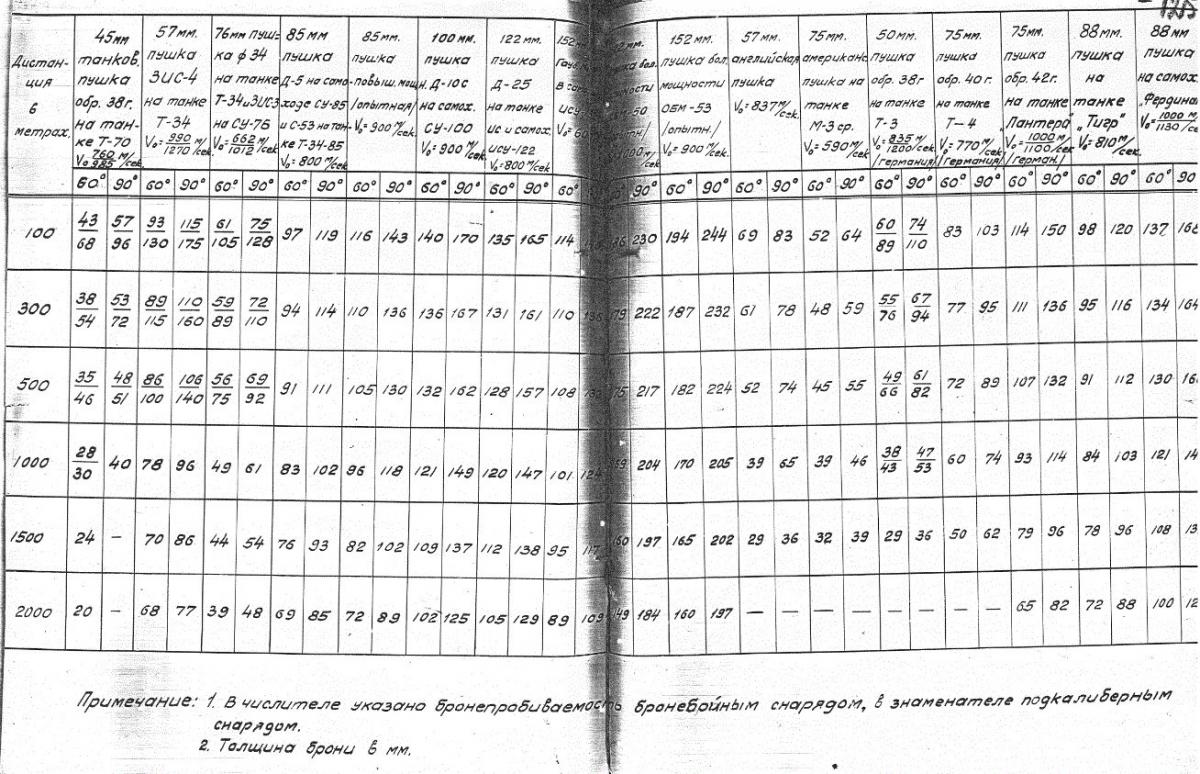 Дистанция в метрах. | 45мм танков. пушка обр. 38г. на танке Т-70 V₀=760/985 м/сек. | 57мм. пушка ЗИС-4 на танке Т-34 V₀=990/1270 м/сек. | 76мм пушка ф 34 на танке Т-34 и ЗИС3 на СУ-76 V₀=662/1012 м/сек. | 85мм пушка Д-5 на самоходе СУ-85 и С-53 на танке Т-34-85 V₀=800 м/сек | 85мм. пушка повыш. мощн. /опытная/ V₀=900 м/сек. | 100мм. пушка Д-10с на самох. СУ-100 V₀=900 м/сек | 122мм. пушка Д-25 на танке ИС и самох. ИСУ-122 V₀=800 м/сек | 152мм. | пушка бол. | 152мм. пушка бол. мощности ОБМ-53 /опытн./ V₀=900 м/сек | 57мм. английская пушка V₀=837 м/сек | 75мм. американ. пушка на танке М-3 ср. V₀=590 м/сек | 50мм. пушка обр. 38г на танке Т-3 V₀=835/1200 м/сек. /германия/ | 75мм. пушка обр. 40г. на танке Т-4 V₀=770 м/сек /германия/ | 75мм. пушка обр. 42г. на танке „Пантера" V₀=1000/1100 м/сек /герман./ | 88мм. пушка на танке „Тигр" V₀=810 м/сек. | 88мм пушка на самох. „Фердина V₀=1000/1130 м/сек.
60° 90° 60° 90° 60° 90° 60° 90° 60° 90° 60° 90° 60° 90° 60° 90° 60° 90° 60° 90° 60° 90° 60° 90° 60° 90° 60° 90° 60° 90° 60° 90°
100 43/68 57/96 93/130 115/175 61/105 75/128 97 119 116 143 140 170 135 165 114 230 194 244 69 83 52 64 60/89 74/110 83 103 114 150 98 120 137 168
300 38/54 53/72 89/115 110/160 59/89 72/110 94 114 110 136 136 167 131 161 110 136 222 187 232 61 78 48 59 55/76 67/94 77 95 111 136 95 116 134 164
500 35/46 48/51 86/100 106/140 56/75 69/92 91 111 105 130 132 162 128 157 108 217 182 224 52 74 45 55 49/66 61/82 72 89 107 132 91 112 130
1000 28/30 40 78 96 49 61 83 102 96 118 121 149 120 147 101 124 204 170 205 39 65 39 46 38/43 47/53 60 74 93 114 84 103 121
1500 24 – 70 86 44 54 76 93 82 102 109 137 112 138 95 117 160 197 165 202 29 36 32 39 29 36 50 62 79 96 78 96 108
2000 20 – 68 77 39 48 69 85 72 89 102 125 105 129 89 109 149 184 160 197 – – – – – – – – 65 82 72 88 100
Примечание: 1. В числителе указано бронепробиваемость бронебойным снарядом, в знаменателе подкалиберным
снарядом.
2. Толщина брони в мм.